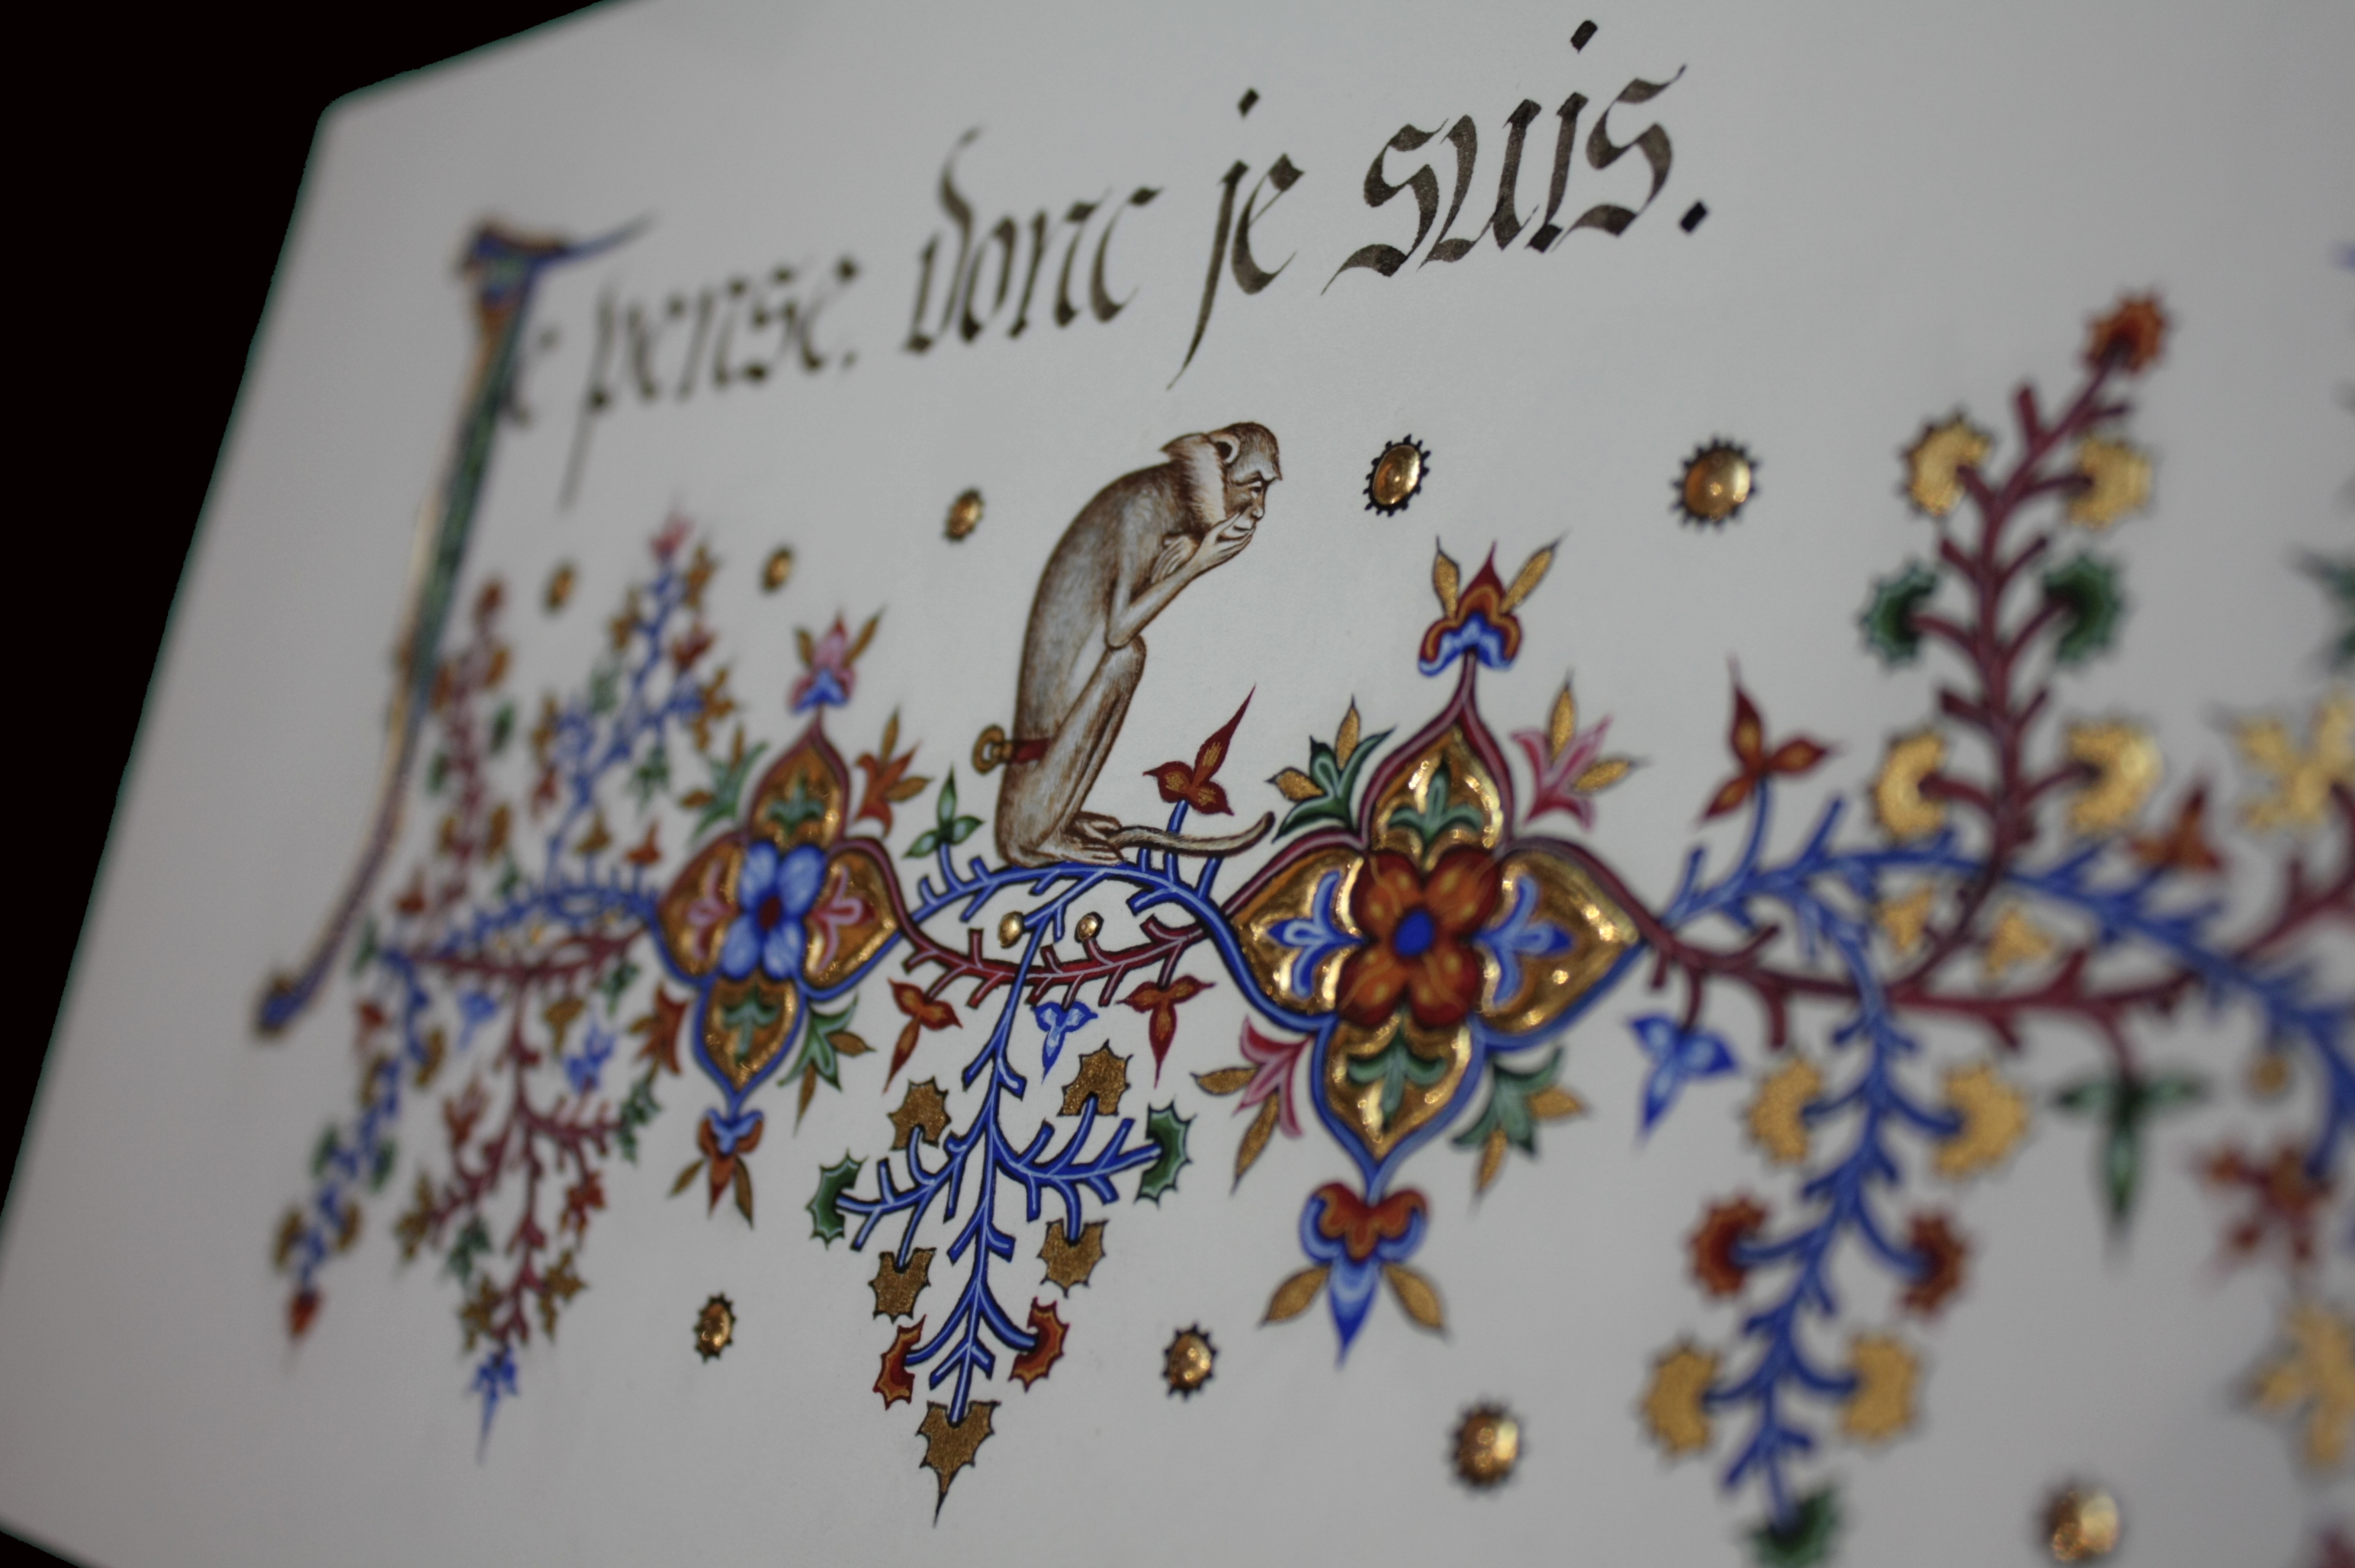 Je pense, donc je suis.